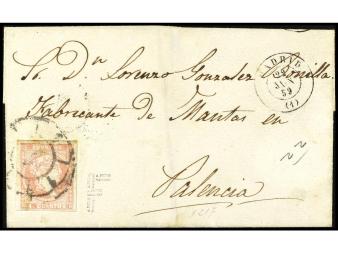 MADRID
59
(1)
Sr. Dn. Lorenzo Gonzalez
Fabricante de Mantas en
Palencia
CUARTOS